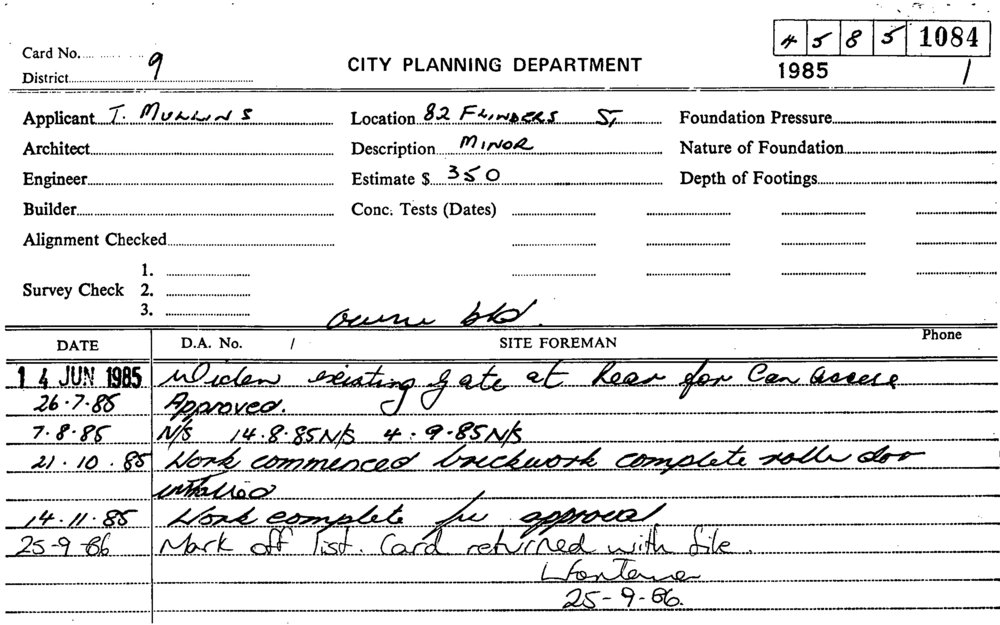 4 5 8 5 1084
Card No.
9
District
CITY PLANNING DEPARTMENT
1985 1
Applicant T. MULLINS Location 82 FLINDERS ST Foundation Pressure
Architect Description MINOR Nature of Foundation
Engineer Estimate $ 350 Depth of Footings
Builder Conc. Tests (Dates)
Alignment Checked
1.
Survey Check 2.
3.
owner bld.
DATE D.A. No. / SITE FOREMAN Phone
14 JUN 1985 Widen existing gate at Rear for Car access
26.7.85 Approved.
7.8.85 N/S 14.8.85 N/S 4.9.85 N/S
21.10.85 Work commenced brickwork complete roller door
installed
14.11.85 Work complete for approval
25-9-86 Mark off list. Card returned with file.
25-9-86.